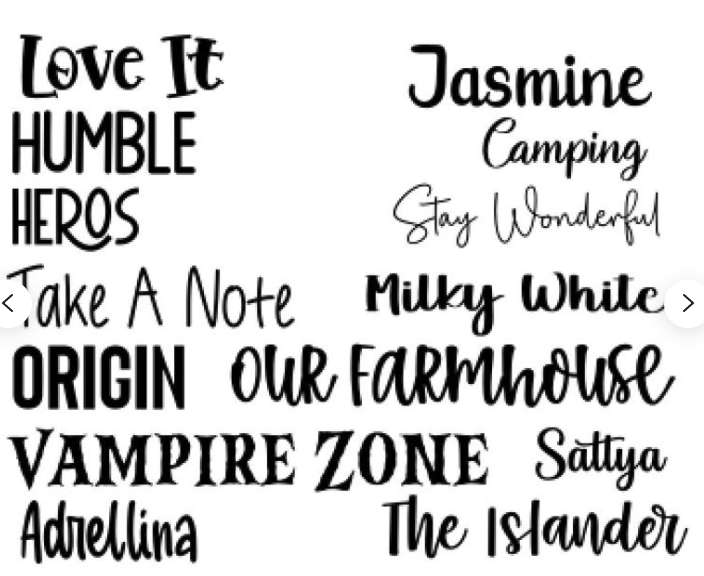 Love It
Jasmine
HUMBLE
Camping
HEROS
Stay Wonderful
Take A Note
Milky White
ORIGIN
OUR FARMhOUSE
VAMPIRE ZONE
Sattya
Adrellina
The Islander